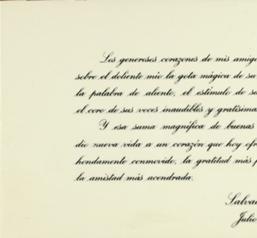 Los generosos corazones de mis amigo
sobre el doliente mío la gota mágica de su
la palabra de aliento, el estímulo de su
el coro de sus voces inaudibles y gratísima
Y esa suma magnífica de buenas
dio nueva vida a un corazón que hoy ofre
hondamente conmovido, la gratitud más p
la amistad más acendrada.
Salva
Julio